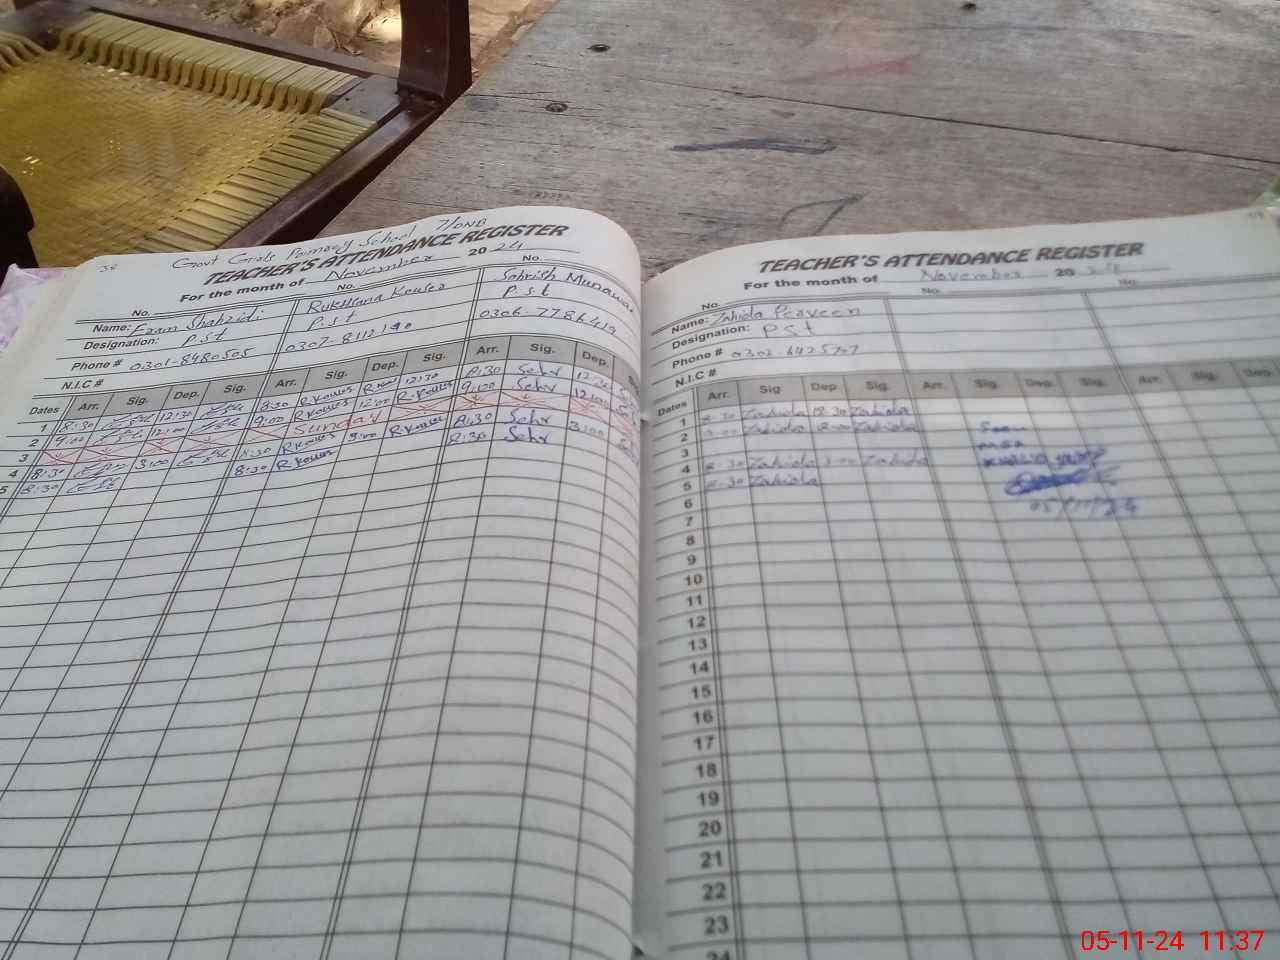 38
Govt Girls Primary School 7/ONB
TEACHER'S ATTENDANCE REGISTER
For the month of November 2024
No. No. No.
Name: Rukhsana Kousar Sehrish
Designation: P.S.t P.s.t P.s.t
Phone # 0301-8480505 0307-8112190
N.I.C #
Dates Arr. Sig. Dep. Sig. Arr. Sig. Dep. Sig. Arr. Sig. Dep.
1 8:30 12:30 8:30 R Kousar 12:30 8:30 Sehr 12:30
2 9:00 12:00 9:00 R Kousar 12:00 R Kousar 9:00 Sehr 12:00
3 Sunday
4 8:30 3:00 8:30 R Kousar 3:00 R Kousar 8:30 Sehr 3:00
5 8:30 8:30 R Kousar 8:30 Sehr
TEACHER'S ATTENDANCE REGISTER
For the month of November 2024
No. No. No.
Name: Zahida Perveen
Designation: P S t
Phone #
N.I.C #
Dates Arr. Sig. Dep. Sig. Arr. Sig. Dep. Sig. Arr. Sig. Dep.
1 8:30 Zahida 12:30 Zahida
2 9:00 Zahida 12:00 Zahida
3
4 8:30 Zahida 3:00 Zahida
5 8:30 Zahida
6 05/11/24
7
8
9
10
11
12
13
14
15
16
17
18
19
20
21
22
23
24
05-11-24 11:37